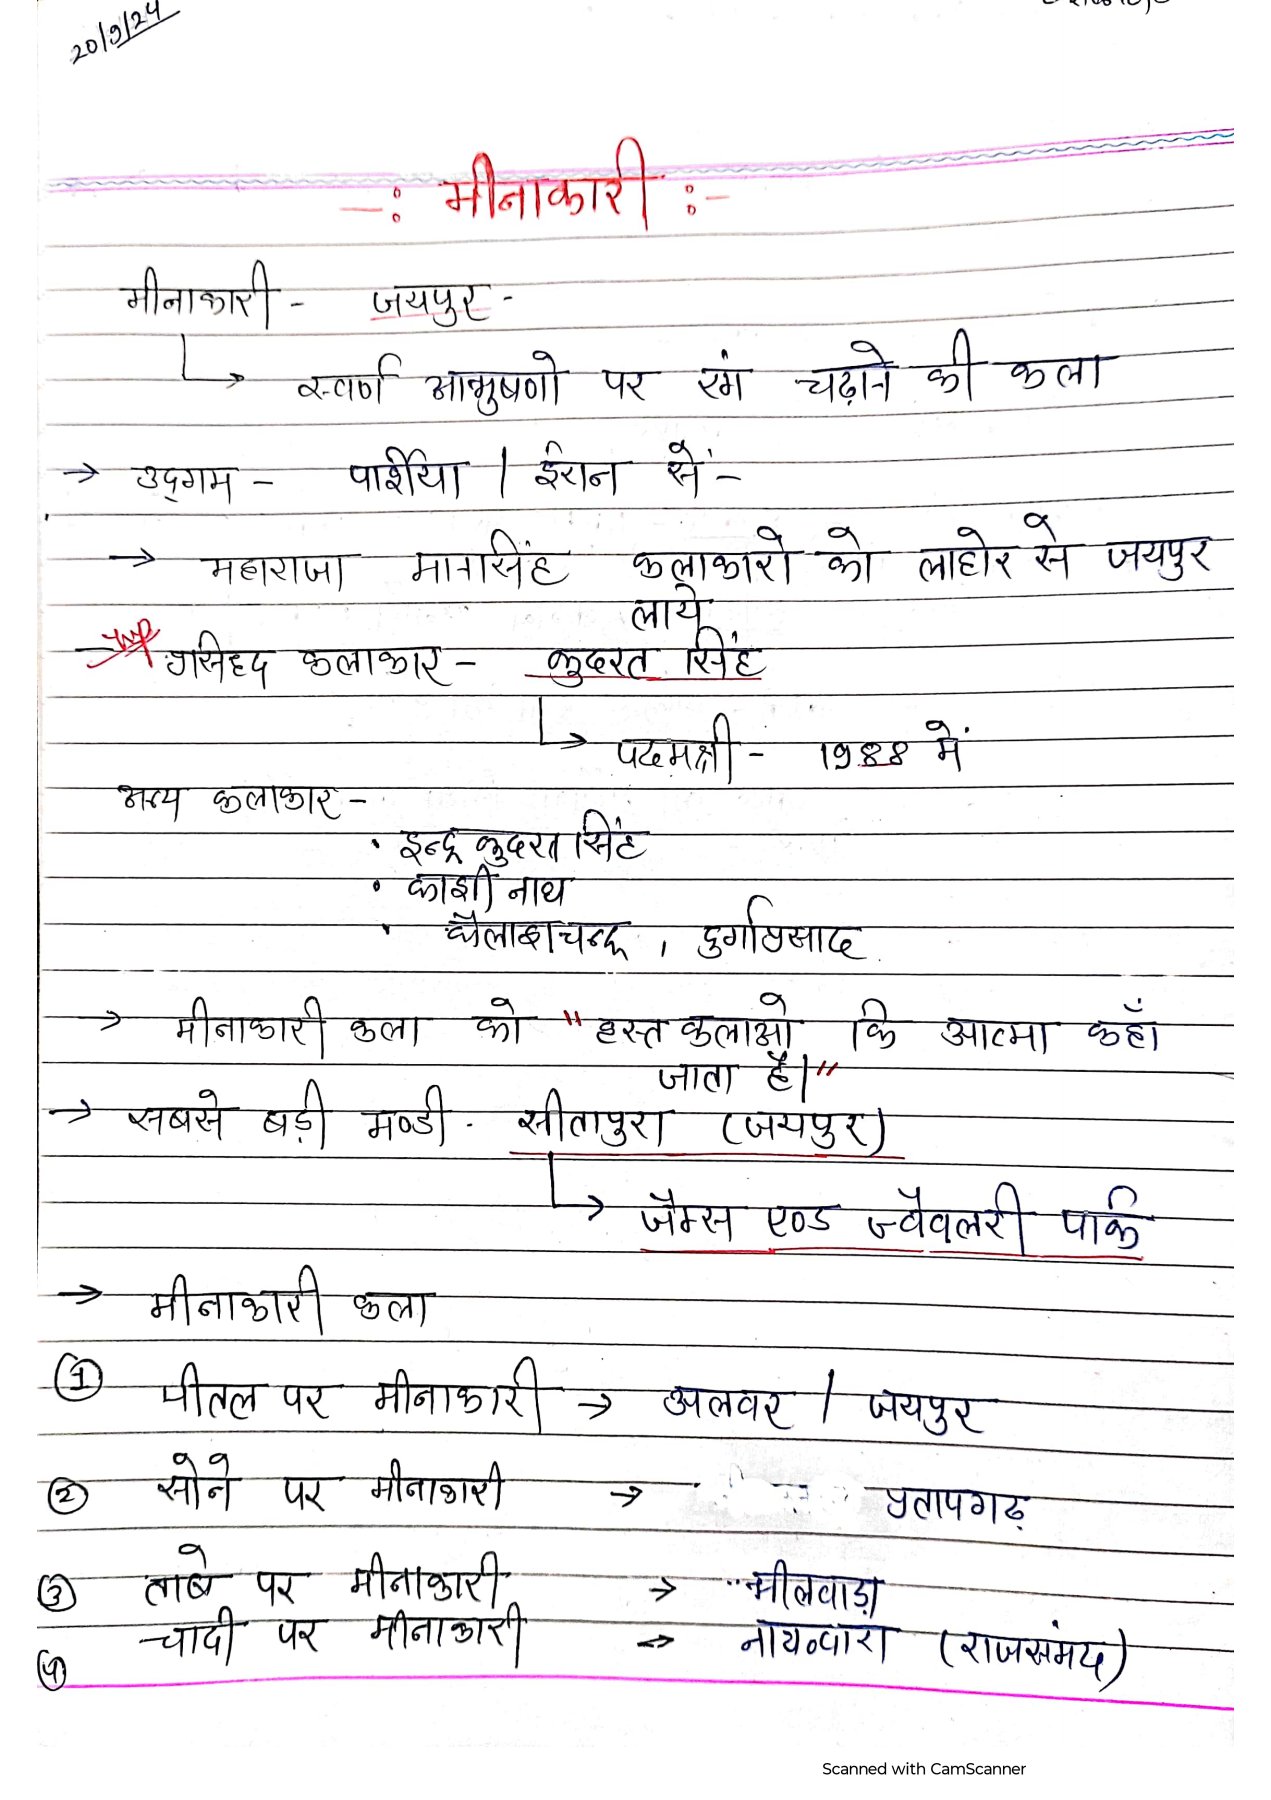 20/9/24
-: मीनाकारी :-
मीनाकारी - जयपुर -
↳ स्वर्ण आभुषणो पर रंग चढ़ाने की कला
→ उद्‌गम - पार्शिया / ईरान सें -
→ महाराजा मानसिंह कलाकारो को लाहोर से जयपुर
लाये
→ Imp प्रसिध्द कलाकार - कुदरत सिंह
↳ पदमश्री - 1988 में
अन्य कलाकार -
• इन्द्र कुदरत सिंह
• काशी नाथ
• कैलाशचन्द्र , दुर्गाप्रसाद
→ मीनाकारी कला को "हस्त कलाओ कि आत्मा कहाँ
जाता है।"
→ सबसे बड़ी मण्डी - सीतापुरा (जयपुर)
↳ जैम्स एण्ड ज्वैवलरी पार्क
→ मीनाकारी कला
① पीतल पर मीनाकारी → अलवर / जयपुर
② सोने पर मीनाकारी → प्रतापगढ़
③ ताबे पर मीनाकारी → भीलवाड़ा
④ चादी पर मीनाकारी → नाथव्दारा (राजसंमद)
Scanned with CamScanner